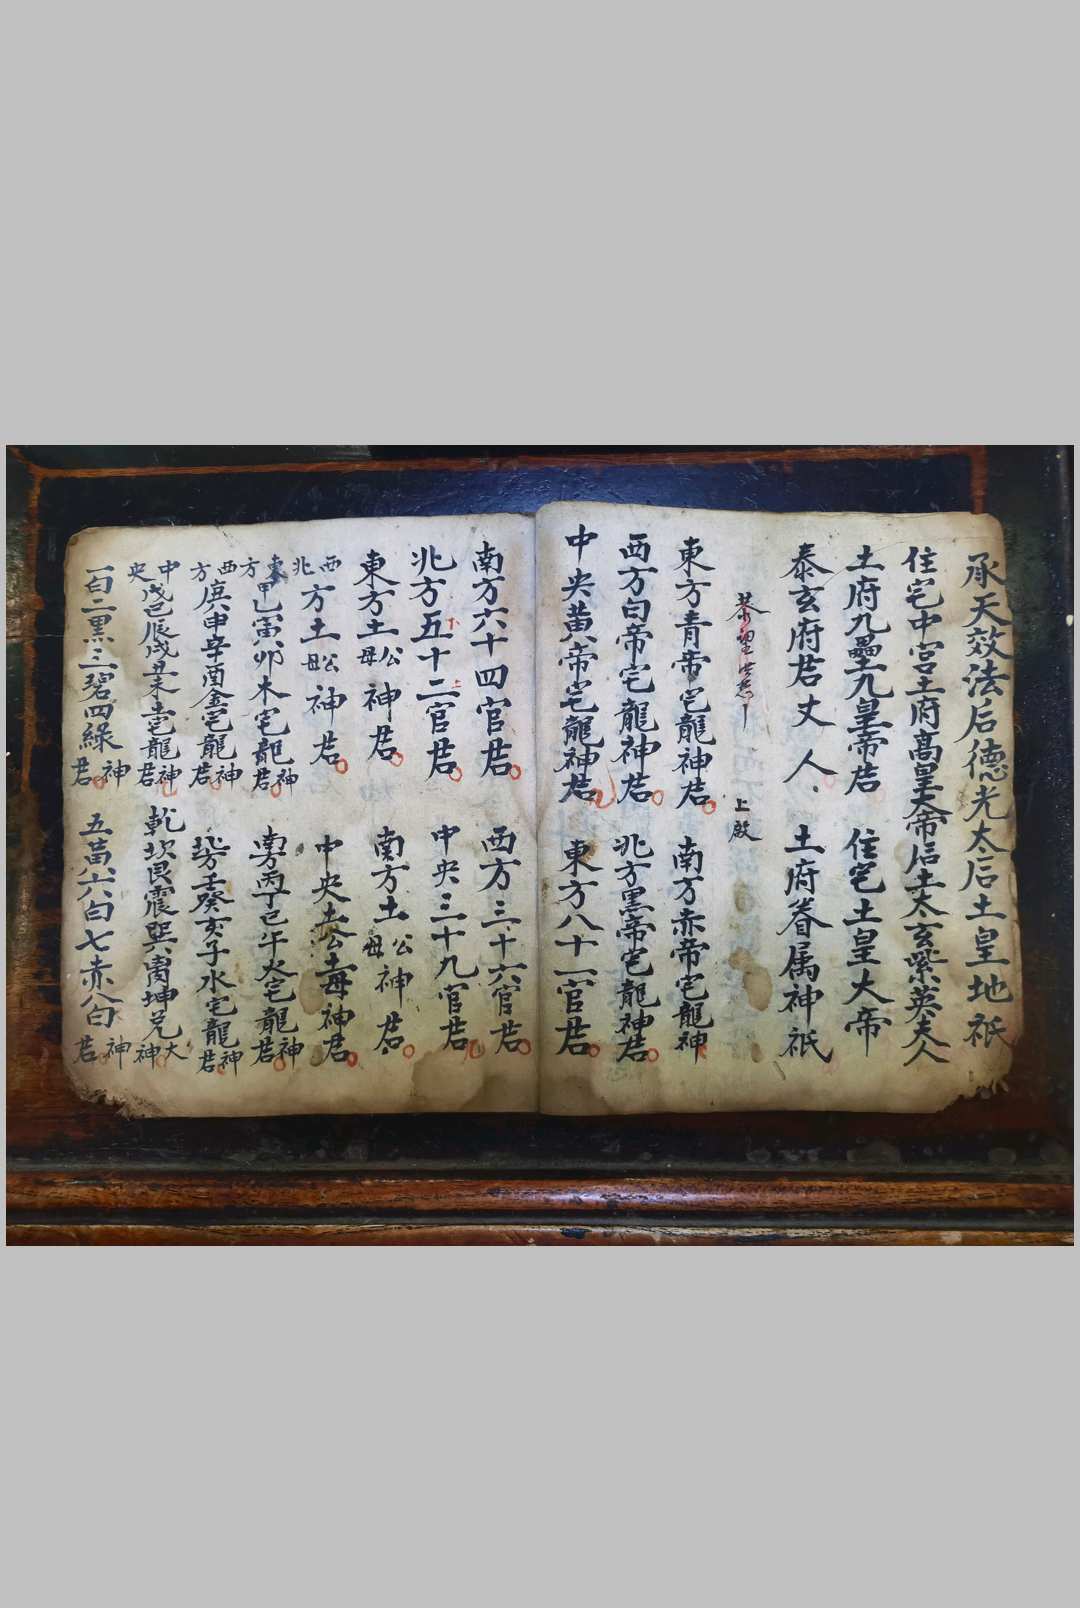 承天效法后德光太后土皇地祇
住宅中宮土府高皇大帝后土太玄紫英夫人
土府九壘九皇帝君 住宅土皇大帝
泰玄府君丈人 土府眷属神祇
恭望 上啟
東方青帝宅龍神君 南方赤帝宅龍神
西方白帝宅龍神君 北方黑帝宅龍神君
中央黃帝宅龍神君 東方八十一官君
南方六十四官君 西方三十六官君
北方五十二官君 中央三十九官君
東方土公土母神君 南方土公土母神君
西北方土公土母神君 中央土公土母神君
東方甲乙寅卯木宅龍神君 南方丙丁巳午火宅龍神君
西方庚申辛酉金宅龍神君 北方壬癸亥子水宅龍神君
中央戊己辰戌丑未土宅龍神君 乾坎艮震巽離坤兌大神
一白二黑三碧四綠神君 五黃六白七赤八白神君